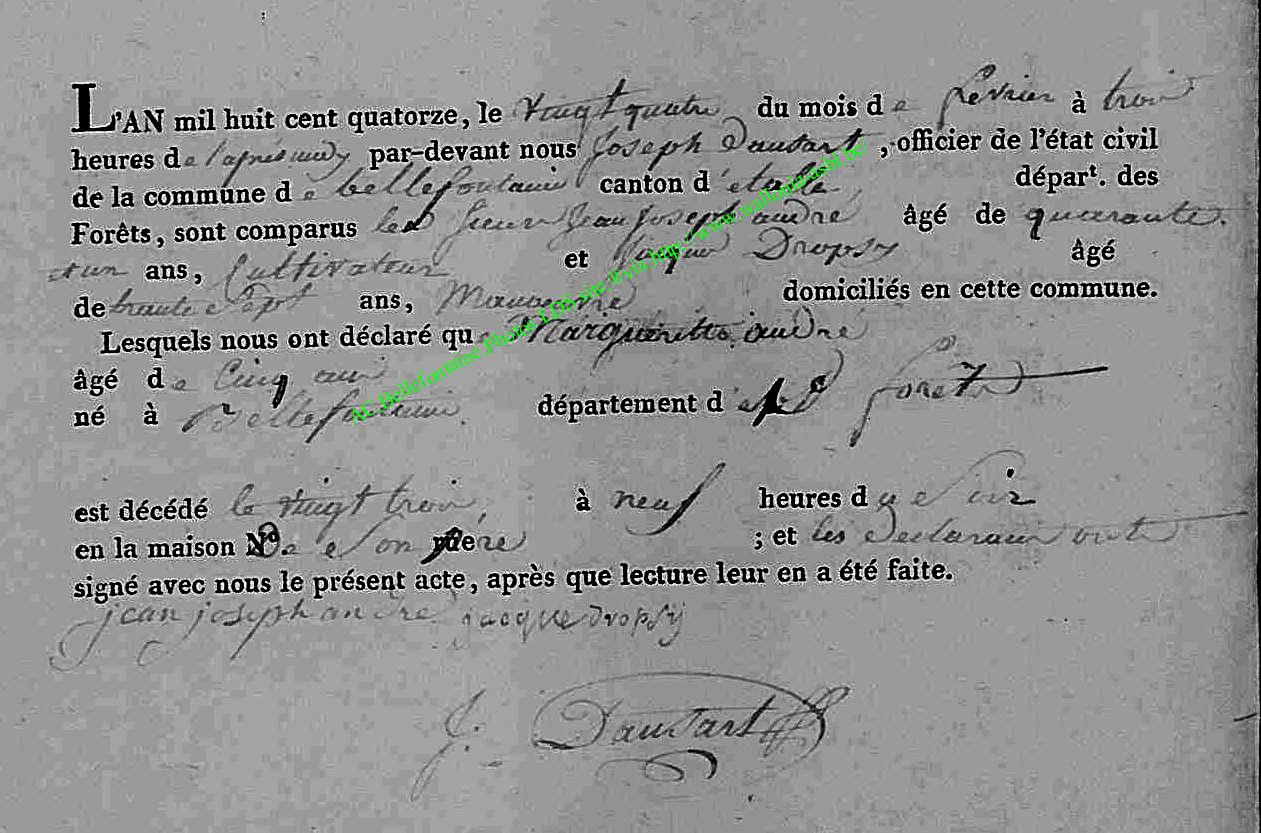 L'AN mil huit cent quatorze, le vingt quatre du mois de fevrier à trois
heures de l'apres midy par-devant nous Joseph Dautart, officier de l'état civil
de la commune de bellefontaine canton d'etalle départ. des
Forêts, sont comparus les sieurs Jean Joseph andré âgé de quarante
et un ans, Cultivateur et Jacque Dropsy âgé
de trante sept ans, domiciliés en cette commune.
Lesquels nous ont déclaré que Margueritte andré
âgé de Cinq ans
né à Bellefontaine département des forêts
est décédé le vingt trois, à neuf heures du soir
en la maison de son père ; et les declarans ont
signé avec nous le présent acte, après que lecture leur en a été faite.
jean joseph andre jacque dropsy
J. Dautart
AC Bellefontaine Photos LDS site via http://www.wallonia.asbl.be/